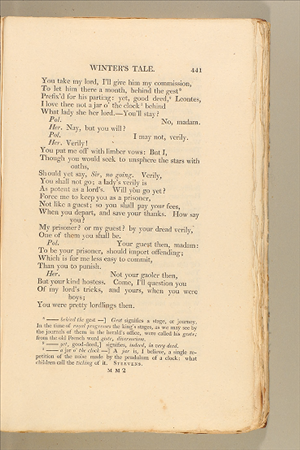 WINTER'S TALE. 441
You take my lord, I'll give him my commission,
To let him there a month, behind the gest
Prefix'd for his parting: yet, good deed, Leontes,
I love thee not a jar o' the clock behind
What lady she her lord.—You'll stay?
Pol. No, madam.
Her. Nay, but you will?
Pol. I may not, verily.
Her. Verily!
You put me off with limber vows: But I,
Though you would seek to unsphere the stars with
oaths,
Should yet say, Sir, no going. Verily,
You shall not go; a lady's verily is
As potent as a lord's. Will you go yet?
Force me to keep you as a prisoner,
Not like a guest; so you shall pay your fees,
When you depart, and save your thanks. How say
you?
My prisoner? or my guest? by your dread verily,
One of them you shall be.
Pol. Your guest then, madam:
To be your prisoner, should import offending;
Which is for me less easy to commit,
Than you to punish.
Her. Not your gaoler then,
But your kind hostess. Come, I'll question you
Of my lord's tricks, and yours, when you were
boys;
You were pretty lordlings then.
— behind the gest —] Gest signifies a stage, or journey.
In the time of royal progresses the king's stages, as we may see by
the journals of them in the herald's office, were called his gests;
from the old French word giste, diversorium.
— yet, good-deed,] signifies, indeed, in very deed.
— a jar o' the clock —] A jar is, I believe, a single re-
petition of the noise made by the pendulum of a clock; what
children call the ticking of it. STEEVENS.
M M 2